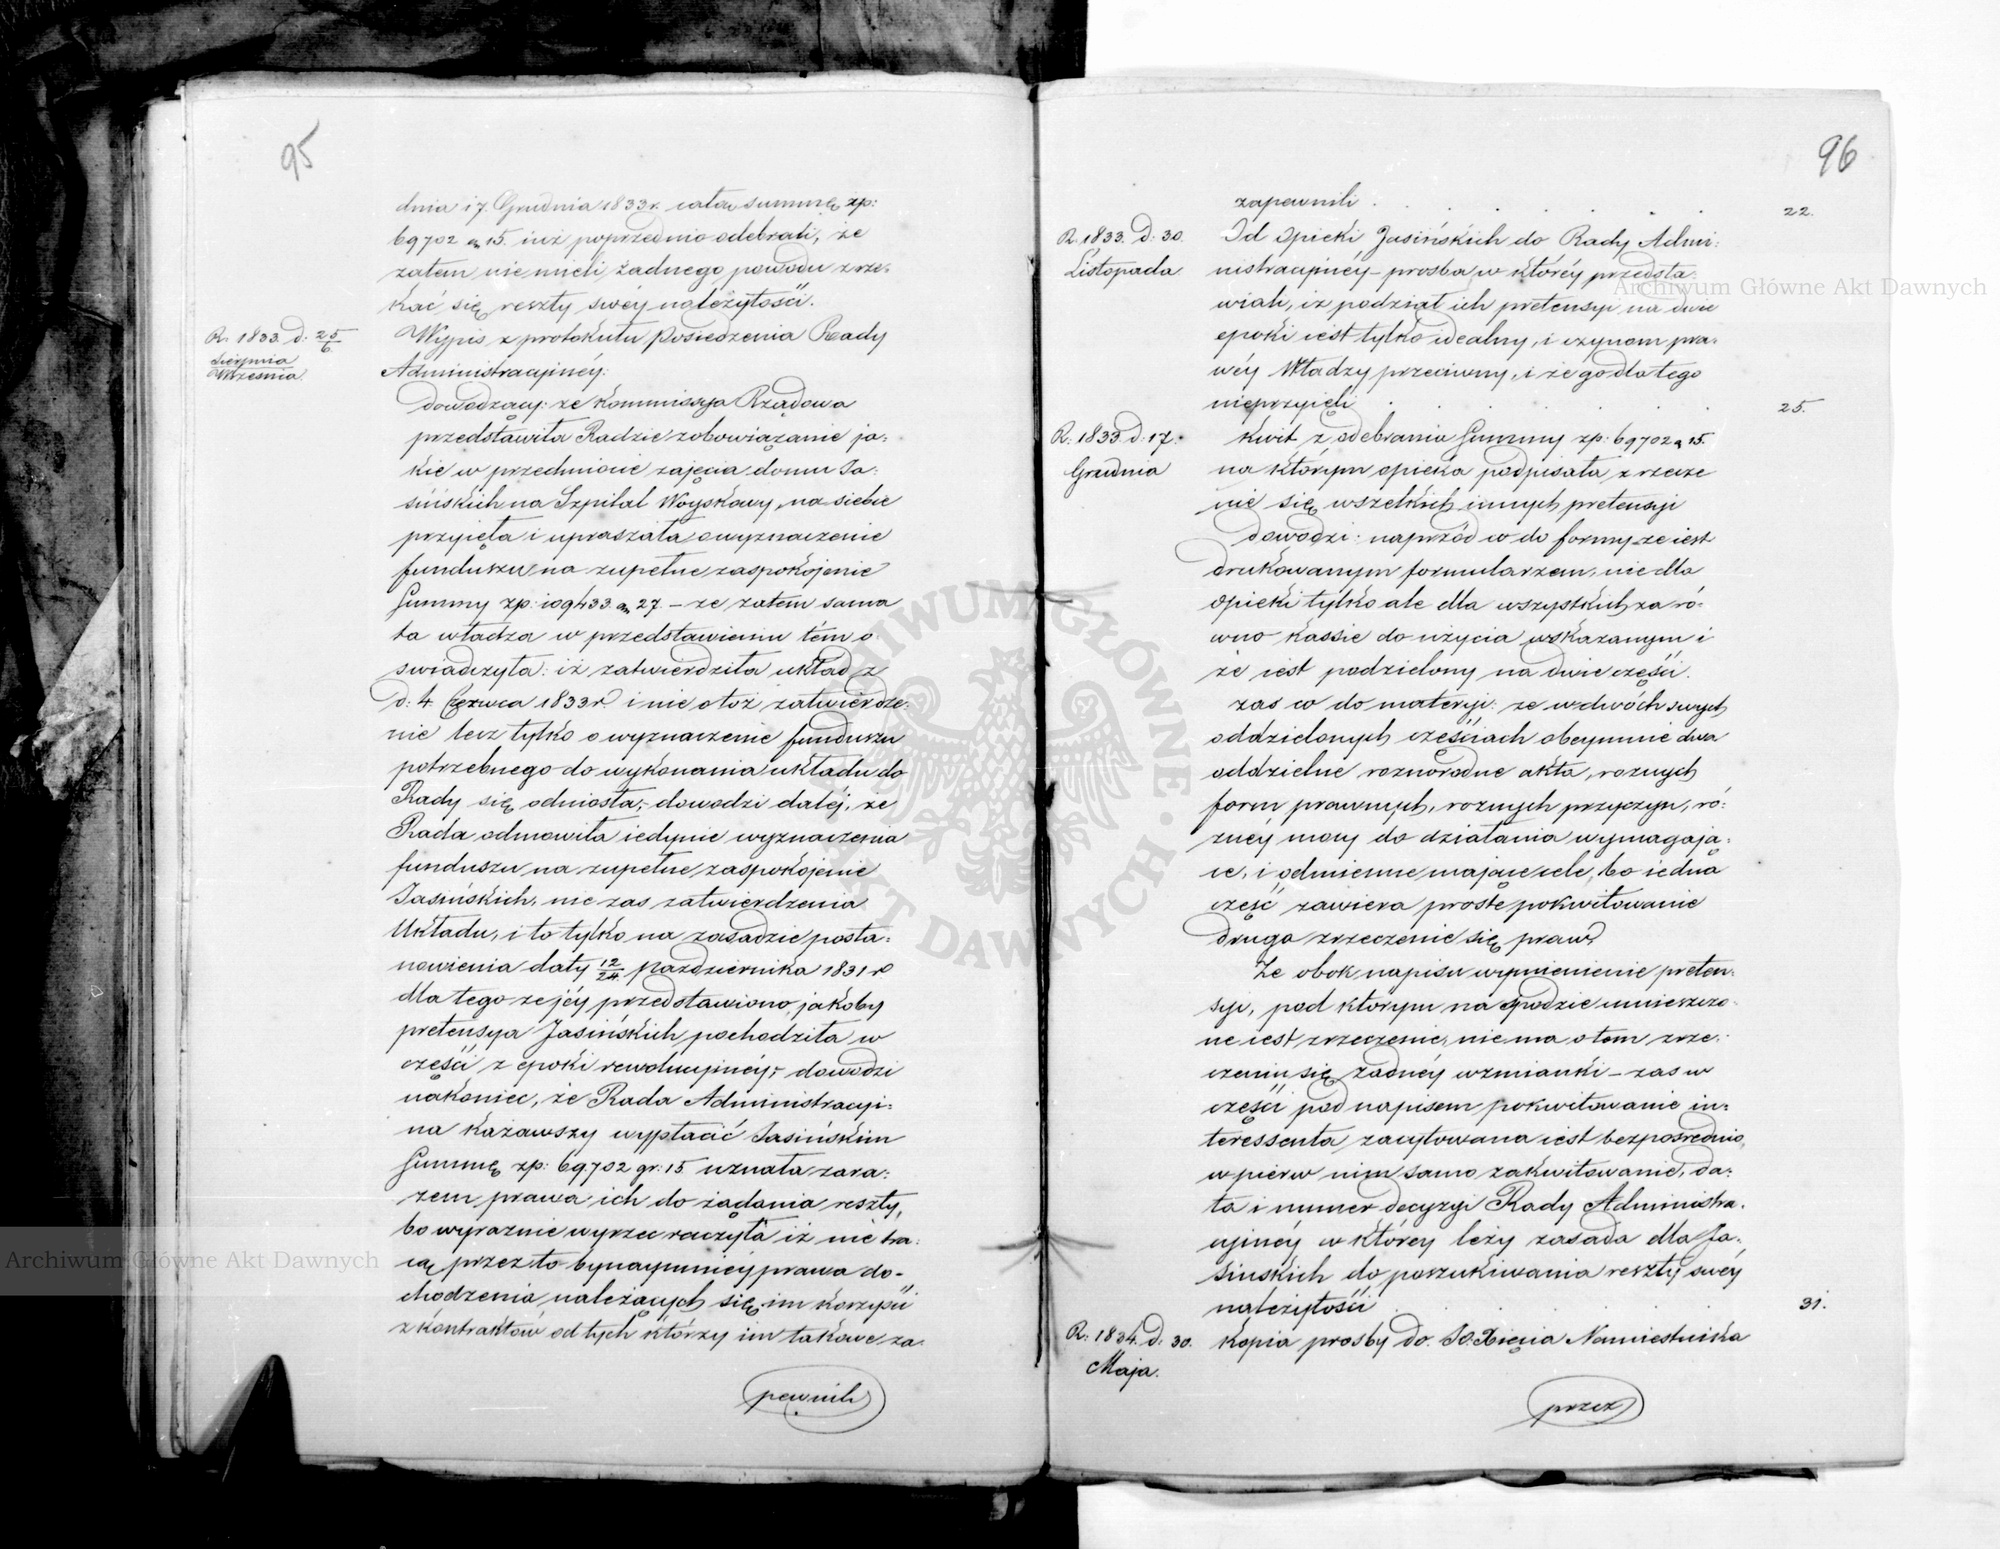 95
dnia 17. Grudnia 1833 r. całą summę zp:
69702 gr 15. iuż poprzednio odebrali, że
zatem nie mieli żadnego powodu zrze-
kać się reszty swéy należytości.
R. 1833. d: 25/6.
Sierpnia
Września.
Wypis z protokułu Posiedzenia Rady
Administracyinéy:
dowodzący: że Kommissya Rządowa
przedstawiła Radzie zobowiązanie ja-
kie w przedmiocie zajęcia domu Ja-
sińskich na Szpital Woyskowy, na siebie
przyięła i upraszała o wyznaczenie
funduszu na zupełne zaspokojenie
Summy zp: 109433. gr 27. – że zatem sama
ta władza w przedstawieniu tém o
swiadczyła: iż zatwierdziła układ z
d: 4. Czerwca 1833 r. i nie o toż zatwierdze-
nie lecz tylko o wyznaczenie funduszu
potrzebnego do wykonania układu do
Rady się odniosła; – dowodzi daléj, że
Rada odmowiła iedynie wyznaczenia
funduszu na zupełne zaspokojenie
Jasińskich, nie zas zatwierdzenia
Układu, i to tylko na zasadzie posta-
nowienia daty 12/24 pazdziernika 1831 r
dla tego ze jéy przedstawiono, jakoby
pretensya Jasińskich pochodziła w
części z epoki rewolucyinéy; – dowodzi
nakoniec, że Rada Administracyi-
na kazawszy wypłacić Jasińskim
Summę zp: 69,702 gr: 15 uznała zara-
zem prawa ich do żądania reszty,
bo wyraznie wyrzec raczyła iż nie tra-
cą przez to bynaymniéy prawa do-
chodzenia należących się im korzyści
z kontraktów od tych którzy im takowe za-
pewnili
96
zapewnili . . . . . . 22.
R. 1833. d: 30.
Listopada.
Od Opieki Jasińskich do Rady Admi-
nistracyinéy – prosba w któréy przedsta-
wiali, iż podział ich pretensyi na dwie
epoki iest tylko idealny, i czynom pra-
wéy Władzy przeciwny, i że go dla tego
nieprzyięli . . . . . . 25.
R: 1833. d: 17.
Grudnia
Kwit z odebrania Summy zp: 69702 gr 15.
na którym opieka podpisała zrzecze
nie się wszelkich innych pretensyi
dowodzi: naprzód co do formy, ze iest
drukowanym formularzem, nie dla
opieki tylko ale dla wszystkich za ró-
wno kassie do użycia wskazanym i
że iest podzielony na dwie części.
zas co do materyi: ze w dwóch swych
oddzielonych częściach obeymuie dwa
oddzielne roznorodne akta, roznych
form prawnych, roznych przyczyn, ró-
znéy mocy do działania wymagają-
ce, i odmienne maiące cele, bo iedna
część zawiera proste pokwitowanie
druga zrzeczenie się praw.
Ze obok napisu wymienienie preten-
syi, pod ktorym na spodzie umieszczo-
ne iest zrzeczenie, niema o tem zrze-
czeniu się żadnéy wzmianki – zas w
części pod napisem pokwitowanie in-
teressenta zacytowana iest bezposrednio,
w pierw nim samo zakwitowanie, da-
ta i numer decyzyi Rady Administra-
cyinéy w któréy leży zasada dla Ja-
sinskich do poszukiwania reszty swéy
należytości . . . . . . 31.
R: 1834. d: 30.
Maja.
Kopia prosby do JO. Xięcia Namiestnika
przez
Archiwum Główne Akt Dawnych
Archiwum Główne Akt Dawnych
ARCHIWUM GŁÓWNE · AKT DAWNYCH ·